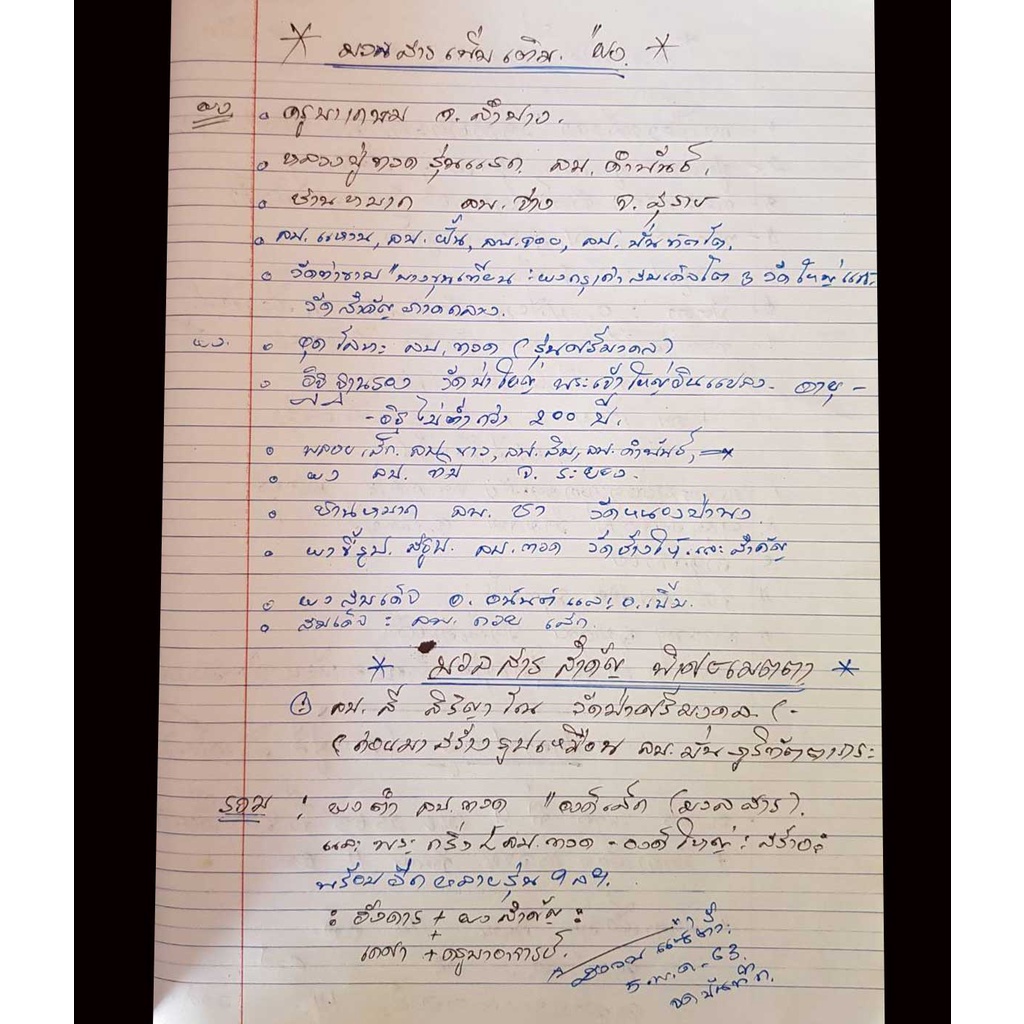 * มวลสารเพิ่มเติม. "ผง. *
ผง ครูบาเกษม จ. ลำปาง.
หลวงปู่ทวด รุ่นแรก. ลป. คำพันธ์.
ชานหมาก ลพ.
ลป. แหวน, ลป. ฝั้น, ลพ. , ลป.
วัดท่าขาม "บางขุนเทียน : ผงกรุเก่า สมเด็จโต 3 วัดใหญ่
วัดสำคัญ ภาคกลาง.
ผง. ชุดโลหะ ลป. ทวด (รุ่นศรีมงคล)
อิฐฐานรอง วัดป่าใหญ่ พระเจ้าใหญ่อินแปลง - อายุ -
- อิฐไม่ต่ำกว่า 200 ปี.
พลอยเสก. ลป. ขาว, ลป. สิม, ลป. คำพันธ์,
ผง ลป. ทิม จ. ระยอง.
ชานหมาก ลพ. ชา วัดหนองป่าพง
ธูป. ลป. ทวด วัดช้างให้. และสำคัญ
ผงสมเด็จ อ. อนันต์ และ อ. เบิ้ม.
สมเด็จ : ลพ. กวย เสก.
* มวลสารสำคัญ พิเศษเมตตา *
① ลป. สี สิริญาโณ วัดป่าศรีมงคล (-
(ต่อมาสร้างรูปเหมือน ลป. มั่น ภูริทัตตเถระ
รวม : ผงดำ ลป. ทวด "องค์เล็ก (มวลสาร).
และ พระกริ่ง ลป. ทวด - องค์ใหญ่ : สร้าง :
พร้อมอีกหลายรุ่น ฯลฯ.
: อังคาร + ผงสำคัญ :
+
เกศา + ครูบาอาจารย์.
5 . พ. ค - 63.
จดบันทึก.